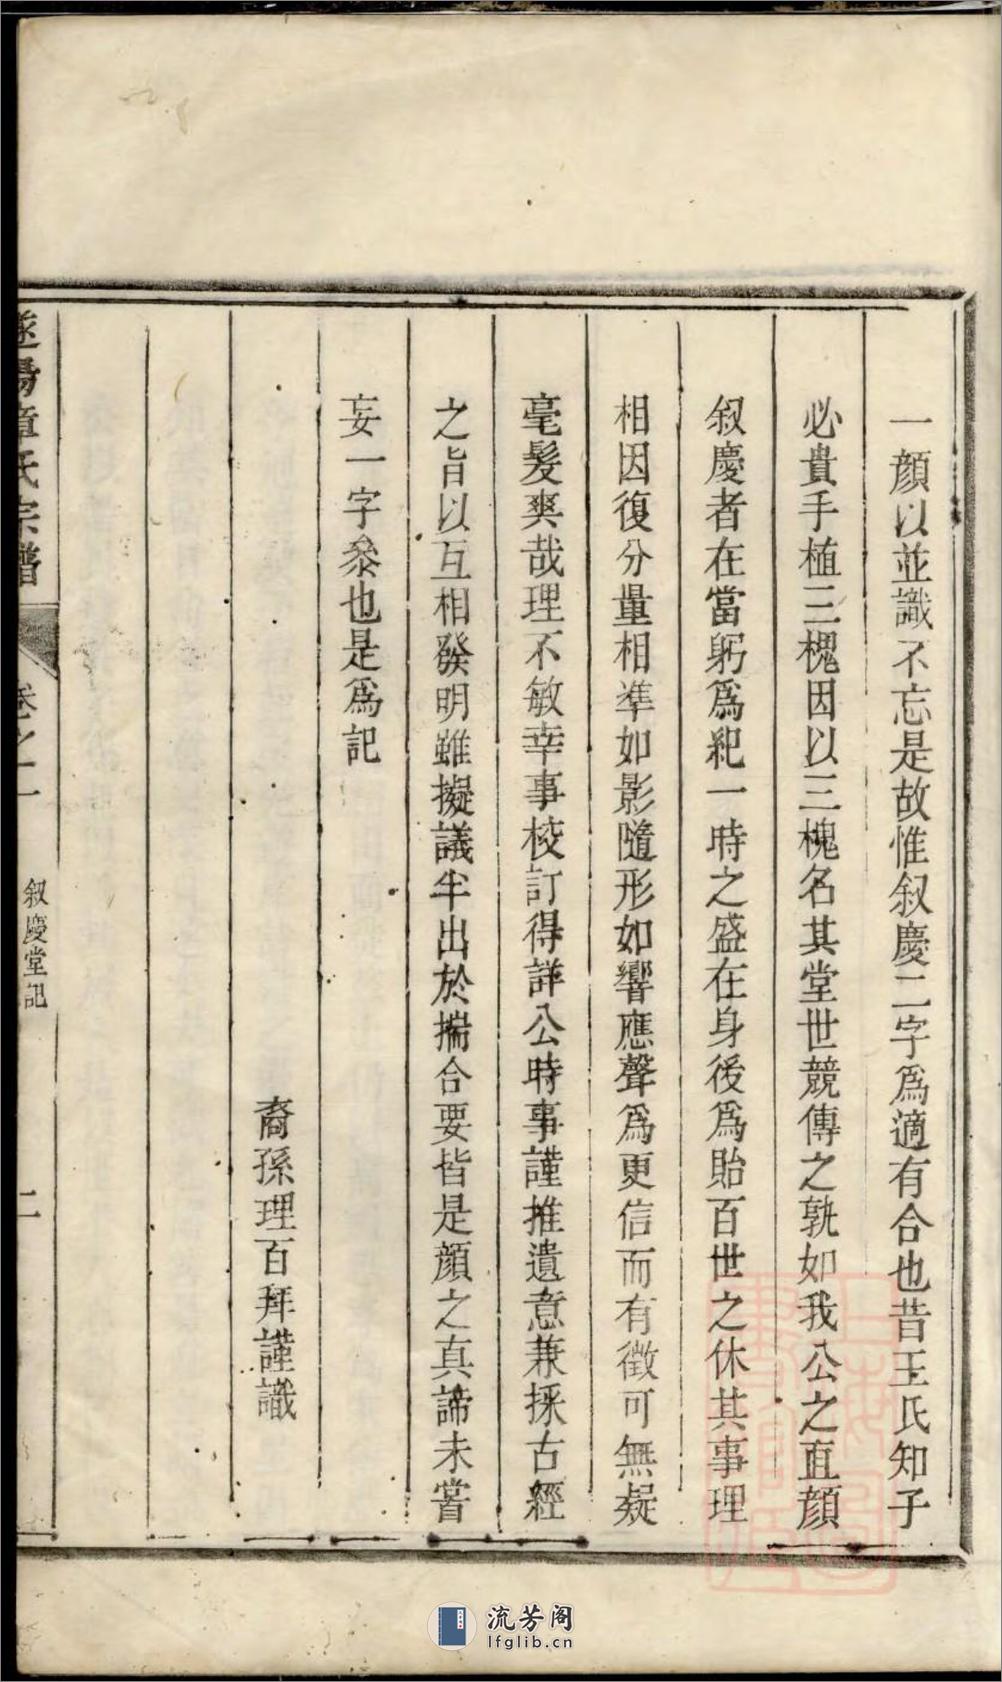 一顏以並識不忘是故惟叙慶二字爲適有合也昔王氏知子
必貴手植三槐因以三槐名其堂世競傳之孰如我公之直顏
叙慶者在當躬爲紀一時之盛在身後爲貽百世之休其事理
相因復分量相準如影隨形如響應聲爲更信而有徵可無疑
毫髮爽哉理不敏幸事校訂得詳公時事謹推遺意兼採古經
之旨以互相發明雖擬議半出於揣合要皆是顏之真諦未嘗
妄一字叅也是爲記
裔孫理百拜謹識
遂陽章氏宗譜
卷之一
叙慶堂記
二
流芳阁
lfglib.cn